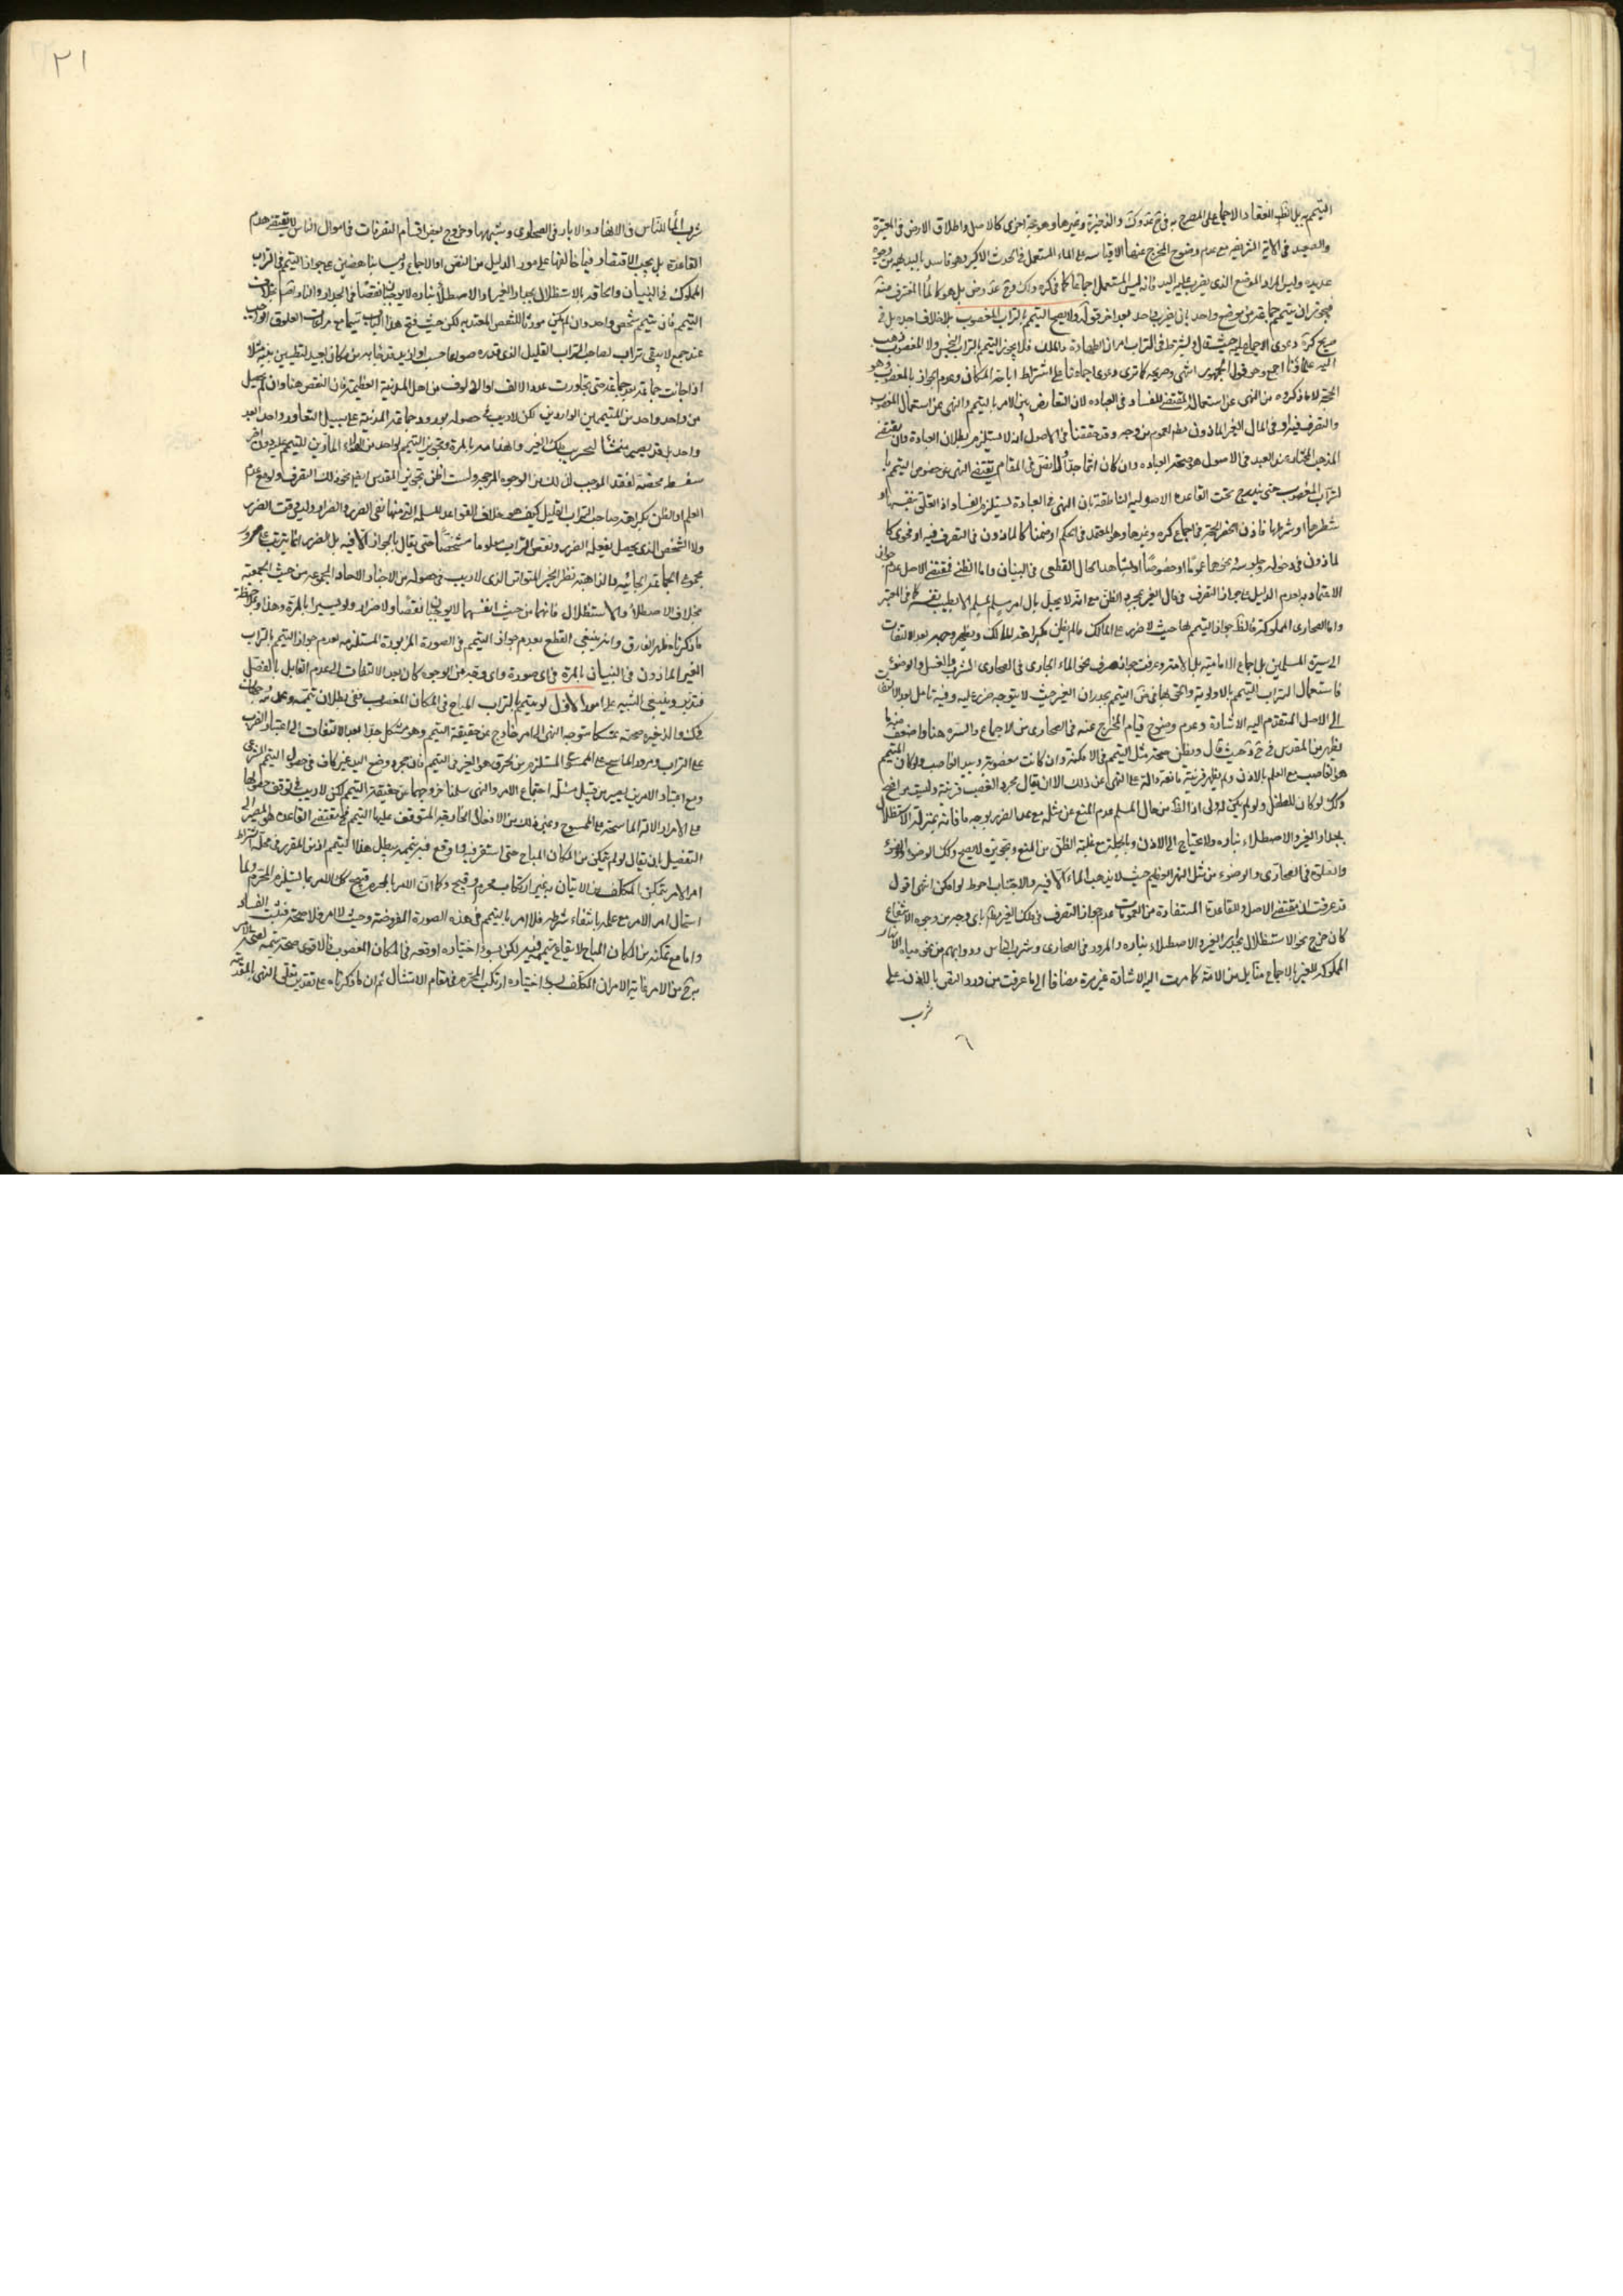 التيمم به بل الظ انعقاد الاجماع على المصرح به في والذخيرة وغيرها وهو حجة اخرى كالاصل واطلاق الارض في
والصعيد في الاية الشريفة مع عدم وضوح المخرج عنهما الا قياسه على الماء المستعمل في الحدث الاكبر وهو فاسد بالبديهة من وجوه
عديدة وليس المراد الموضع الذي يضرب عليه اليد فانه ليس المستعمل اجماعا كما في كره بل هو كالماء المغترف منه
فيجوز ان يتيمم جماعة من موضع واحد بان يضرب واحد بعد اخر قوله ولا يصح التيمم بالتراب المغصوب بلا خلاف اجده بل في
صريح كره دعوى الاجماع عليه حيث قال ويشترط في التراب امران الطهارة والملك فلا يجوز التيمم بالتراب النجس ولا المغصوب ذهب
اليه علماؤنا اجمع وهو قول الجمهور انتهى وصريحه كما ترى دعوى اجماعنا على اشتراط اباحة المكان وعدم الجواز بالمغصوب وهو
الحجة لا ما ذكروه من النهى عن استعماله المقتضى للفساد في العباده لان التعارض بين الامر بالتيمم والنهى عن استعمال المغصوب
والتصرف فيه او في المال الغير الماذون فيه عموم من وجه وقد حققنا في الاصول انه لا يستلزم بطلان العبادة وان يقتضى
المذهب المختار عند العبد في الاصول هو صحة العباده وان كان اثما جدا ولا نص في المقام يقتضى النهى عن خصوص التيمم با
لتراب المغصوب حتى يندرج تحت القاعدة الاصولية الناطقة بان النهى في العبادة يستلزم الفساد اذ اتعلق بنفسها او
شطرها او شرطها فاذن انحصر الحجة في اجماع كره وغيرها وهو المعتمد في الحكم او ضمنا كالماذون في التصرف فيه او فحوى كا
لماذون في دخوله وجلوسه ونحوهما عموما او خصوصا او بشاهد الحال القطعى في البنيان واما الظني فمقتضى الاصل عدم جواز
الاعتماد به لعدم الدليل على جواز التصرف في مال الغير بمجرد الظن مع انه لا يحل مال امرء مسلم لمسلم الا بطيب نفسه كما في المعتبر
واما الصحارى المملوكة فالظ جواز التيمم بها حيث لا ضرر على المالك ما لم يظن بكراهة المالك ويظهر وجهه بعد الالتفات
الى سيرة المسلمين بل اجماع الامامية بل الامة وعرفت جوازه صرف نحو الماء الجارى في الصحارى للشرب والغسل والوضوء
فاستعمال التراب للتيمم بالاولوية والحق بها في التيمم بجدران الغير حيث لا يتوجه ضرر عليه وفيه تامل بعد الالتفات
الى الاصل المتقدم اليه الاشارة وعدم وضوح قيام المخرج عنه في الصحارى من الاجماع والسيره هنا واضعف منه ما
يظهر من المقدس في حيث قال ويظن صحة مثل التيمم في الامكنة وان كانت مغصوبة وبيد الغاصب ولو كان المتيمم
هو الغاصب مع العلم بالاذن ولم يظهر قرينة مانعة دالة على النهى عن ذلك الا ان يقال مجرد الغصب قرينة وليست بواضح
وكك لو كان للطفل ولو لم يكن له ولى اذ الظ من حال المسلم عدم المنع عن مثله مع عدم الضرر بوجه ما فانه بمنزلة الاستظلال
بجدار الغير والاصطلاء بناره ولا يحتاج الى الاذن وبالجملة مع غلبة الظن من المنع وتجويزه لا يصح وكك الوضوء والوضوء
والصلوة في الصحارى والوضوء من مثل النهر العظيم حيث لا يذهب الماء الا فيه والاجتناب احوط لو امكن انتهى اقول
قد عرفت ان مقتضى الاصل والقاعدة المستفادة من العمومات عدم جواز التصرف في ملك الغير باى وجه من وجوه الانتفاع
كان خرج نحو الاستظلال بجدار الغير والاصطلاء بناره والمرور في الصحارى وشرب الناس ودوابهم من نحو مياه الابار
المملوكة للغير بالاجماع مقابل من الامة كما مرت اليه الاشارة غير مرة مضافا الى ما عرفت من ورود النص بالاذن على
شرب
٦
٢١
شرب الماء للناس في الانهار والابار في الصحارى وشبهها وخروج بعض اقسام التصرفات في اموال الناس لا يقتضى هدم
القاعدة بل يجب الاقتصار فيما خالفها على مورد الدليل من النص او الاجماع وليسا بناهضين على جواز التيمم في التراب
المملوك في البنيان والحاقه بالاستظلال بجدار الغير او الاصطلاء بناره لا يوجبان نقصا في الجدار والنار بخلاف
التيمم فان تيمم شخص واحد وان لم يكن مورثا للنقص المعتد به لكن حيث فتح هذا الباب سيما مع مراعات العلوق الواجب
عند جمع لا يبقى تراب لصاحب التراب القليل الذى قدره صواعا حسب او ازيد قد جاء به من مكان بعيد لتطيين بيته مثلا
اذا جائت جماعة بعد جماعة حتى تجاوزت عدد الالف او الالوف من اهل المدينة العظيمة فان النقص هنا وان لم يحصل
من واحد واحد من المتيممين الواردين لكن لا ريب في حصوله بورود جماعة المدينة على سبيل التعاور واحد بعد
واحد بل قد يصير منشأ لتخريب ملك الغير وانهدامه بالمرة وتجويز التيمم لواحد من الماذون للتيمم عليه دون اخر
سفسطة محضة لفقد الموجب لذلك من الوجوه المرجحة ولست اظن تجويز المقدس ايضا نحو ذلك التصرف ولو مع عدم
العلم او الظن بكراهة صاحب التراب القليل كيف هو خلاف القواعد المسلمة التى منها نفى الضرر والضرار
ولا الشخص الذى يحصل بفعله الضرر ونقص التراب معلوما مشخصا حتى يقال بالجواز الا فيه بل الضرر انما يترتب على مرور
مجموع الجماعة الجائية والذاهبة نظير الخبر المتواتر الذى لا ريب في حصوله من الاخبار الاحاد المجموعة من حيث الجمعية
بخلاف الاصطلاء والاستظلال فانهما من حيث انفسهما لا يوجبان نقصا ولا ضررا ولو يسيرا بالمرة وهذا وبملاحظة
ما ذكرناه ظهر الفارق وانه ينبغى القطع بعدم جواز التيمم في الصورة المزبورة المستلزمه لعدم جواز التيمم بالتراب
الغير الماذون في البنيان بالمرة في اى صورة واى وقت من الوجوه كان بعد الالتفات الى عدم القابل بالفصل
فتدبر وينبغى التنبيه على امور الاول لو تيمم بالتراب المباح في المكان المغصوب ففى بطلان تيممه وعدمه
والذخيره صحته تمسكا بتوجه النهى الى امر خارج عن حقيقة التيمم وهو مشكل جدا بعد الالتفات الى اعتبار الضرب
على التراب ومرور الماسح على الممسوح المستلزم من تحرق هواء الغير في التيمم فان مجرد وضع اليد غير كاف في حصول التيمم الشرعى
ومع اعتبار الامرين يصير من قبيل مسئلة اجتماع الامر والنهى سلمنا خروجهما عن حقيقة التيمم لكن لا ريب في توقف حصولها
على الامرار الالة الماسحة على الممسوح وغير ذلك من الافعال الخارجة المتوقف عليها التيمم فمقتضى القاعده هو المصير الى
التفصيل بان يقال لو لم يتمكن من المكان المباح حتى استقر فيه وقع فيه تيممه يبطل هذا التيمم اذ من المقرر في محله اشتراط
امر الامر بتمكن المكلف من الاتيان به بغير ارتكاب محرم وقبيح وكما ان الامر بالمحرم قبيح كك الامر بما يستلزم المحرم ولما
استحال امر الامر مع علمه بانتفاء شرطه فلا امر بالتيمم في هذه الصورة المفروضة وحيث لا امر فلا صحة فثبت الفساد
واما مع تمكنه من المكان المباح لايقاع تيممه فيه لكن بسوء اختياره اوقعه في المكان المغصوب فالاقوى صحة تيممه لصحة الامر
من الامر غاية الامر ان المكلف بسوء اختياره ارتكب المحرم في مقام الامتثال ثم ان ما ذكرناه على تقدير تعلق النهى بالمقدمة